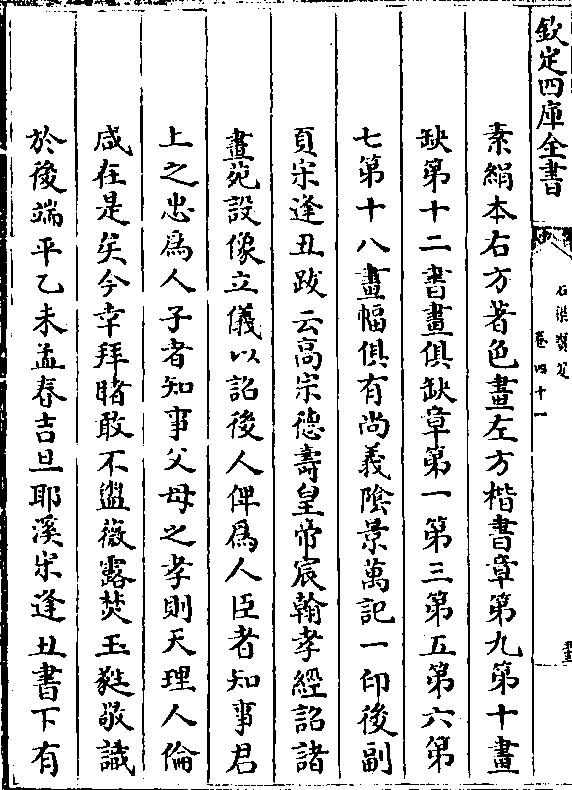 欽定四庫全書
石渠寶笈
卷四十一
素絹本右方著色畫左方楷書章第九第十畫
缺第十二書畫俱缺章第一第三第五第六第
七第十八畫幅俱有尚義隂景萬記一印後副
頁宋逢丑跋云髙宗徳壽皇帝宸翰孝經詔諸
畫苑設像立儀以詔後人俾為人臣者知事君
上之忠為人子者知事父母之孝則天理人倫
咸在是矣今幸拜睹敢不盥薇露焚玉蕤敬識
於後端平乙未孟春吉旦耶溪宋逢丑書下有